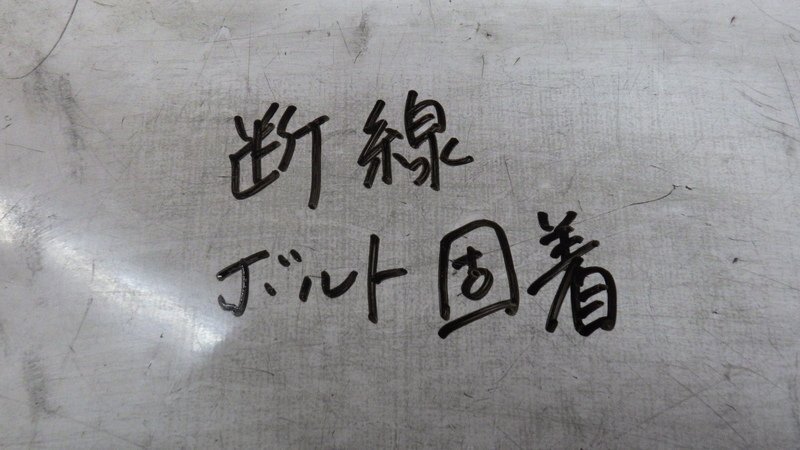 断線
ボルト固着